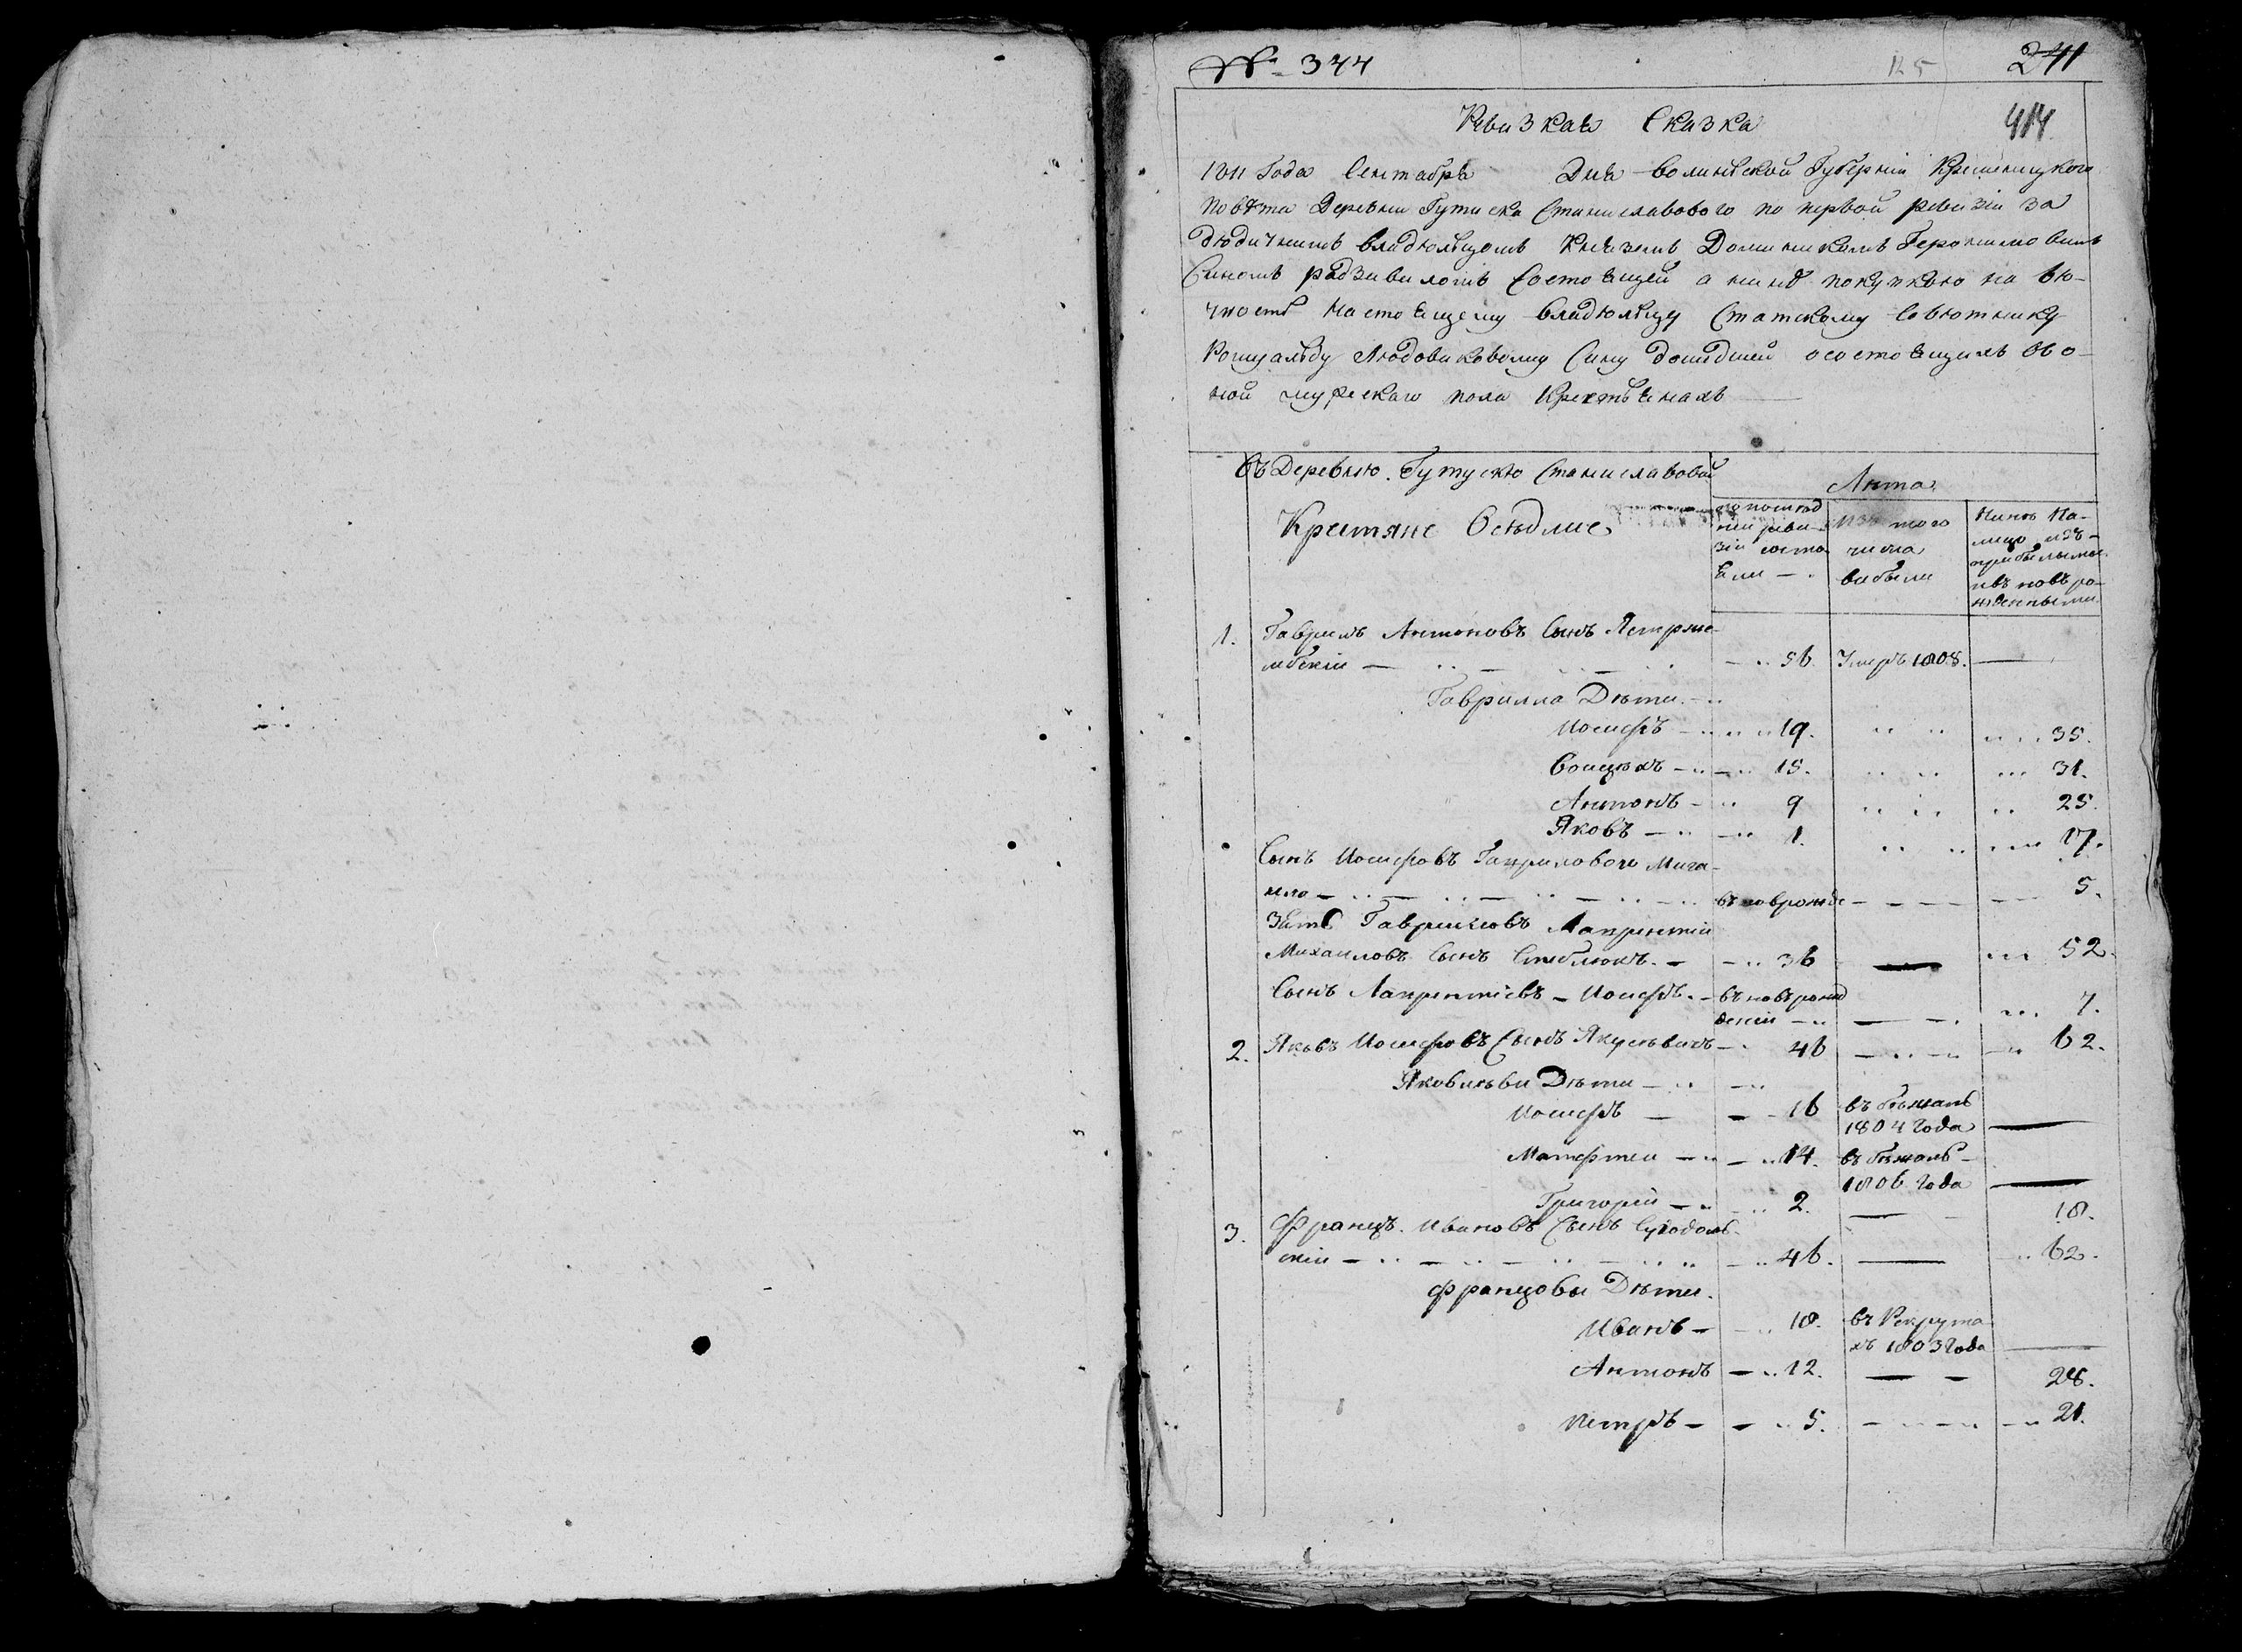 № 344
125
241
414
Ревизкая Сказка
1811 Года Сентабра Дня Волинской Губернии Кремницкого
повѣта Деревни Гутиска Станиславового по первой ревизіи за
дюдичнимъ владюльцомъ Княземъ Доминикомъ Геронимовимъ
Синомъ Радзивиломъ Состоящей а нинѣ покупкою на вю-
чность Настоящему владюльцу Статскому Совютнику
Ромуальду Людовиковому Сину дошедшей о состоящихъ вօ о-
ной мужескаго пола Крестьянахъ
Въ Деревню Гутускю Станиславовой
Лѣта
Крестяне Осѣдлие
по послѣд
ней реви-
зіи состо
яли
Изъ того
числа
вибыли
Нинѣ На-
лицо изъ-
прибылыми
ивъ новъ ро-
жденными
1. Гаврилъ Антоновъ Сынъ Ястрже-
мбскіи — 56. Умеръ 1808. —
Гаврилла Дѣти
Иосифъ — 19. 35.
Войцѣхъ — 15. 31.
Антонъ — 9 25.
Яковъ — 1. 17.
Сынъ Иосифовъ Гаврилового Миха-
ило — въ новрожде — 5.
Зять Гавриловъ Лаврентій
Михаиловъ Сынъ Стеблюкъ. — 36 — 52.
Сынъ Лаврентіевъ — Иосифъ. — въ новъ рожд
деніи — 7.
2. Яковъ Иосифовъ Сынъ — 46 — 62.
Яковлеви Дѣти —
Иосифъ — 16 въ бѣжалъ
1804 Года —
Матфтеи — 14. въ бѣжалъ
1806 Года —
Григорей — 2. — 18.
3. Францъ. Ивановъ Сынъ Суходоль-
скіи — 46. — 62.
Францовы Дѣти.
Иванъ — 18. въ Рекрута
хъ 1803 Года —
Антонъ — 12. — 28.
Петръ — 5. — 21.